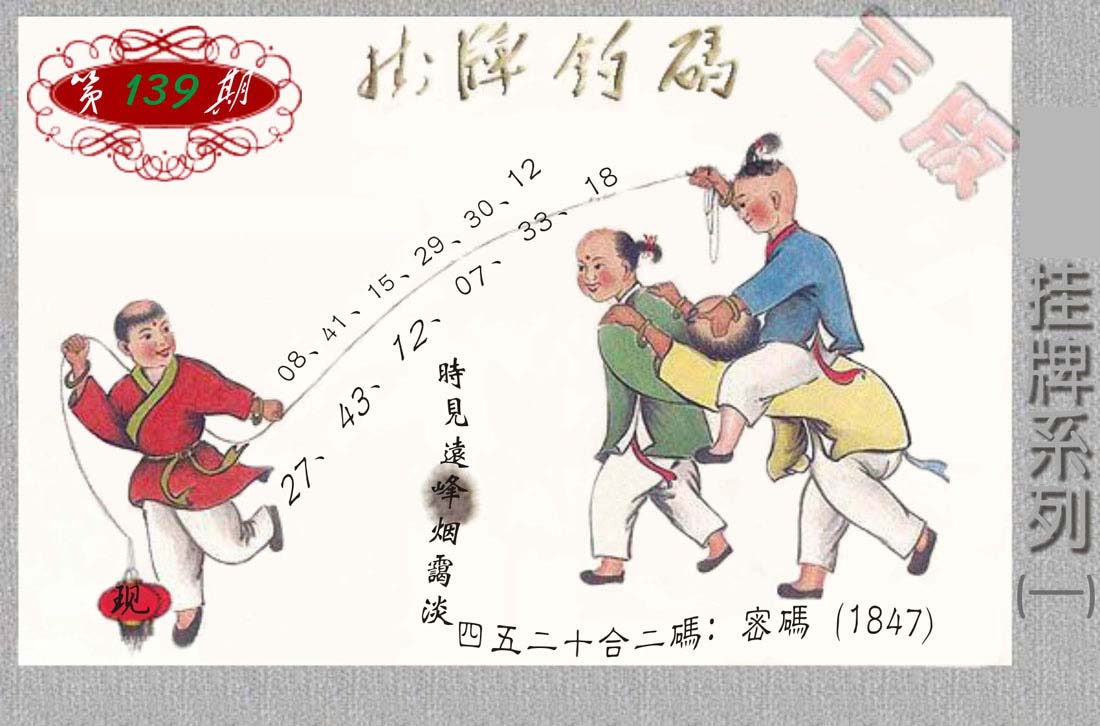 第139期
掛牌钓碼
正版
08、41、15、29、30、12
27、43、12、07、33、18
時見遠峰烟靄淡
现
四五二十合二碼：密碼（1847）
挂牌系列（一）